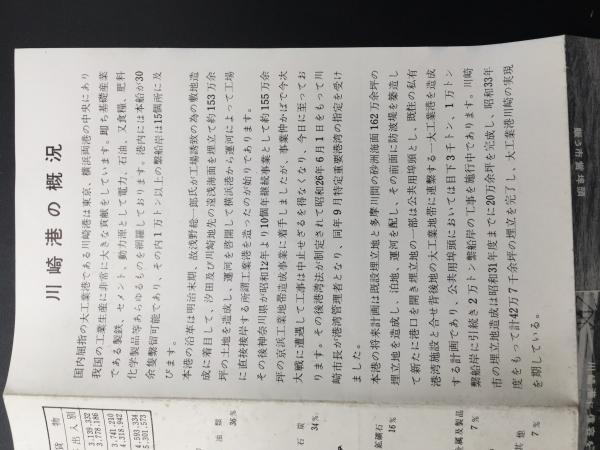 川崎港の概況
国内屈指の大工業港である川崎港は東京、横浜両港の中央にあり
我国の工業生産に非常に大きな貢献をしています。即ち基礎産業
である製鉄、セメント、動力源として電力、石油、又食糧、肥料
化学製品等あらゆるものを網羅しております。港内には本船が30
余隻繋留可能であり、その内1万トン以上の繋船岸は15個所に及
びます。
本港の沿革は明治末期、故浅野総一郎氏が工場誘致の為の敷地造
成に着目して、汐田及び川崎地先の遠浅海面を埋立て約153万余
坪の土地を造成し、運河を啓開して横浜港から運河によって工場
に直接接岸する所謂工業港を造ったのが始りであります。
その後神奈川県が昭和12年より10個年継続事業として約155万余
坪の京浜工業地帯造成事業に着手しましたが、事業仲かばで今次
大戦に遭遇して工事は中止せざるを得なくなり、今日に至ってお
ります。その後港湾法が制定されて昭和26年6月1日をもって川
崎市長が港湾管理者となり、同年9月特定重要港湾の指定を受け
ました。
本港の将来計画は既設埋立地と多摩川間の砂洲海面162万余坪の
埋立地を造成し、泊地、運河を配し、その前面に防波堤を築造し
て新たに港口を開き埋立地の一部は公共用埠頭とし、既往の私有
港湾施設と合せ背後地の大工業地帯に連繋する一大工業港を造成
する計画であり、公共用埠頭においては目下3千トン、1万トン
繋船岸に引続き2万トン繋船岸の工事を施行中であります。川崎
市の埋立地造成は昭和31年度までに20万余坪を完成し、昭和33年
度をもって計42万7千余坪の埋立を完了し、大工業港川崎の実現
を期している。
貨物
出入別
3.139.332
3.778.186
3.741.210
4.318.942
4.593.334
5.301.573
油類
36%
石炭
34%
鉱磺石
16%
金属及製品
7%
其他
7%